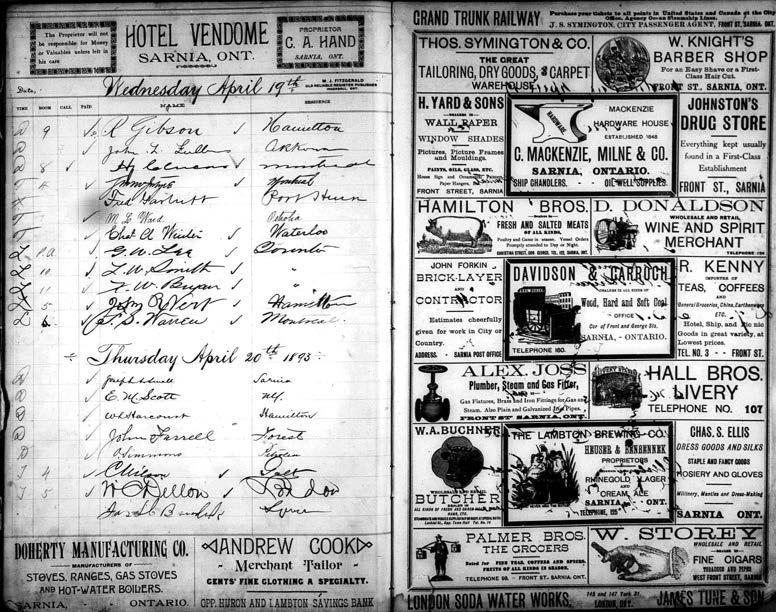 The Proprietor will not
be responsible for Money
or Valuables unless left in
his care
HOTEL VENDOME
SARNIA, ONT.
PROPRIETOR
C. A. HAND
SARNIA, ONT.
Date, Wednesday April 19th
M. J. FITZGERALD
OLD RELIABLE REGISTER PUBLISHER
TIME ROOM CALL PAID NAME RESIDENCE
9 R Gibson Hamilton
8
4
Port Huron
M L Ward
Chas A Weiler Waterloo
P.a G. W. Lee Toronto
10 T. W. Smith "
11 F. W. Bryan "
5 John R Vert Hamilton
6 S. Warren Montreal
Thursday April 20th 1893
Sarnia
E. M. Scott NY.
W H Harcourt Hamilton
John Farrell Forest
O Simmons
4 C Wilson Galt
5 W C Dillon London
DOHERTY MANUFACTURING CO.
MANUFACTURERS OF
STOVES, RANGES, GAS STOVES
AND HOT-WATER BOILERS.
SARNIA, ONTARIO.
ANDREW COOK
Merchant Tailor
GENTS' FINE CLOTHING A SPECIALTY.
OPP. HURON AND LAMBTON SAVINGS BANK
GRAND TRUNK RAILWAY
Purchase your tickets to all points in United States and Canada at the City
Office, Agency Ocean Steamship Lines.
J. S. SYMINGTON, CITY PASSENGER AGENT, FRONT ST., SARNIA, ONT.
THOS. SYMINGTON & CO.
THE GREAT
TAILORING, DRY GOODS, & CARPET
WAREHOUSE
W. KNIGHT'S
BARBER SHOP
For an Easy Shave or a First-
Class Hair Cut.
FRONT ST., SARNIA, ONT.
H. YARD & SONS
DEALERS IN
WALL PAPER
WINDOW SHADES
Pictures, Picture Frames
and Mouldings.
PAINTS, OILS, GLASS, ETC.
House Sign and Ornamental Painters,
Paper Hangers, Etc.
FRONT STREET, SARNIA
HARDWARE
MACKENZIE
HARDWARE HOUSE
ESTABLISHED 1848
C. MACKENZIE, MILNE & CO.
SARNIA, ONTARIO.
SHIP CHANDLERS. OIL WELL SUPPLIES.
JOHNSTON'S
DRUG STORE
Everything kept usually
found in a First-Class
Establishment
FRONT ST., SARNIA
HAMILTON BROS.
DEALERS IN
FRESH AND SALTED MEATS
OF ALL KINDS.
Poultry and Game in season. Vessel Orders
Promptly attended to Day or Night.
D. DONALDSON
WHOLESALE AND RETAIL
WINE AND SPIRIT
MERCHANT
JOHN FORKIN
BRICK-LAYER
AND
CONTRACTOR
Estimates cheerfully
given for work in City or
Country.
ADDRESS. - SARNIA POST OFFICE
DAVIDSON & CARROCH
DEALERS IN ALL KINDS OF
Wood, Hard and Soft Coal
OFFICE
Cor of Front and George Sts.
SARNIA, - ONTARIO.
TELEPHONE 160.
R. KENNY
IMPORTER OF
TEAS, COFFEES
AND
General Groceries, China, Earthenware
ETC.
Hotel, Ship, and Picnic
Goods in great variety, at
Lowest prices.
TEL. NO. 3 - FRONT ST.
ALEX. JOSS
Plumber, Steam and Gas Fitter,
Gas Fixtures, Brass and Iron Fittings for Gas and
Steam. Also Plain and Galvanized Iron Pipes.
FRONT ST SARNIA, ONT.
HALL BROS.
LIVERY
TELEPHONE NO. 107
W. A. BUCHNER
WHOLESALE AND RETAIL
BUTCHER
THE LAMBTON BREWING CO.
PROPRIETORS
RHINEGOLD LAGER
AND
CREAM ALE
SARNIA, ONT.
CHAS. S. ELLIS
DRESS GOODS AND SILKS
STAPLE AND FANCY GOODS
HOSIERY AND GLOVES
Millinery, Mantles and Dress-Making
SARNIA ONT.
PALMER BROS.
THE GROCERS
Noted for FINE TEAS, COFFEES AND SPICES,
FRUITS OF ALL KINDS IN SEASON.
TELEPHONE 98. - FRONT ST. SARNIA, ONT.
W. STOREY
WHOLESALE AND RETAIL
DEALER IN
FINE CIGARS
TOBACCOS AND PIPES
WEST FRONT STREET, SARNIA
LONDON SODA WATER WORKS
145 and 147 York St.
LONDON, ONT.
JAMES TUNE & SON